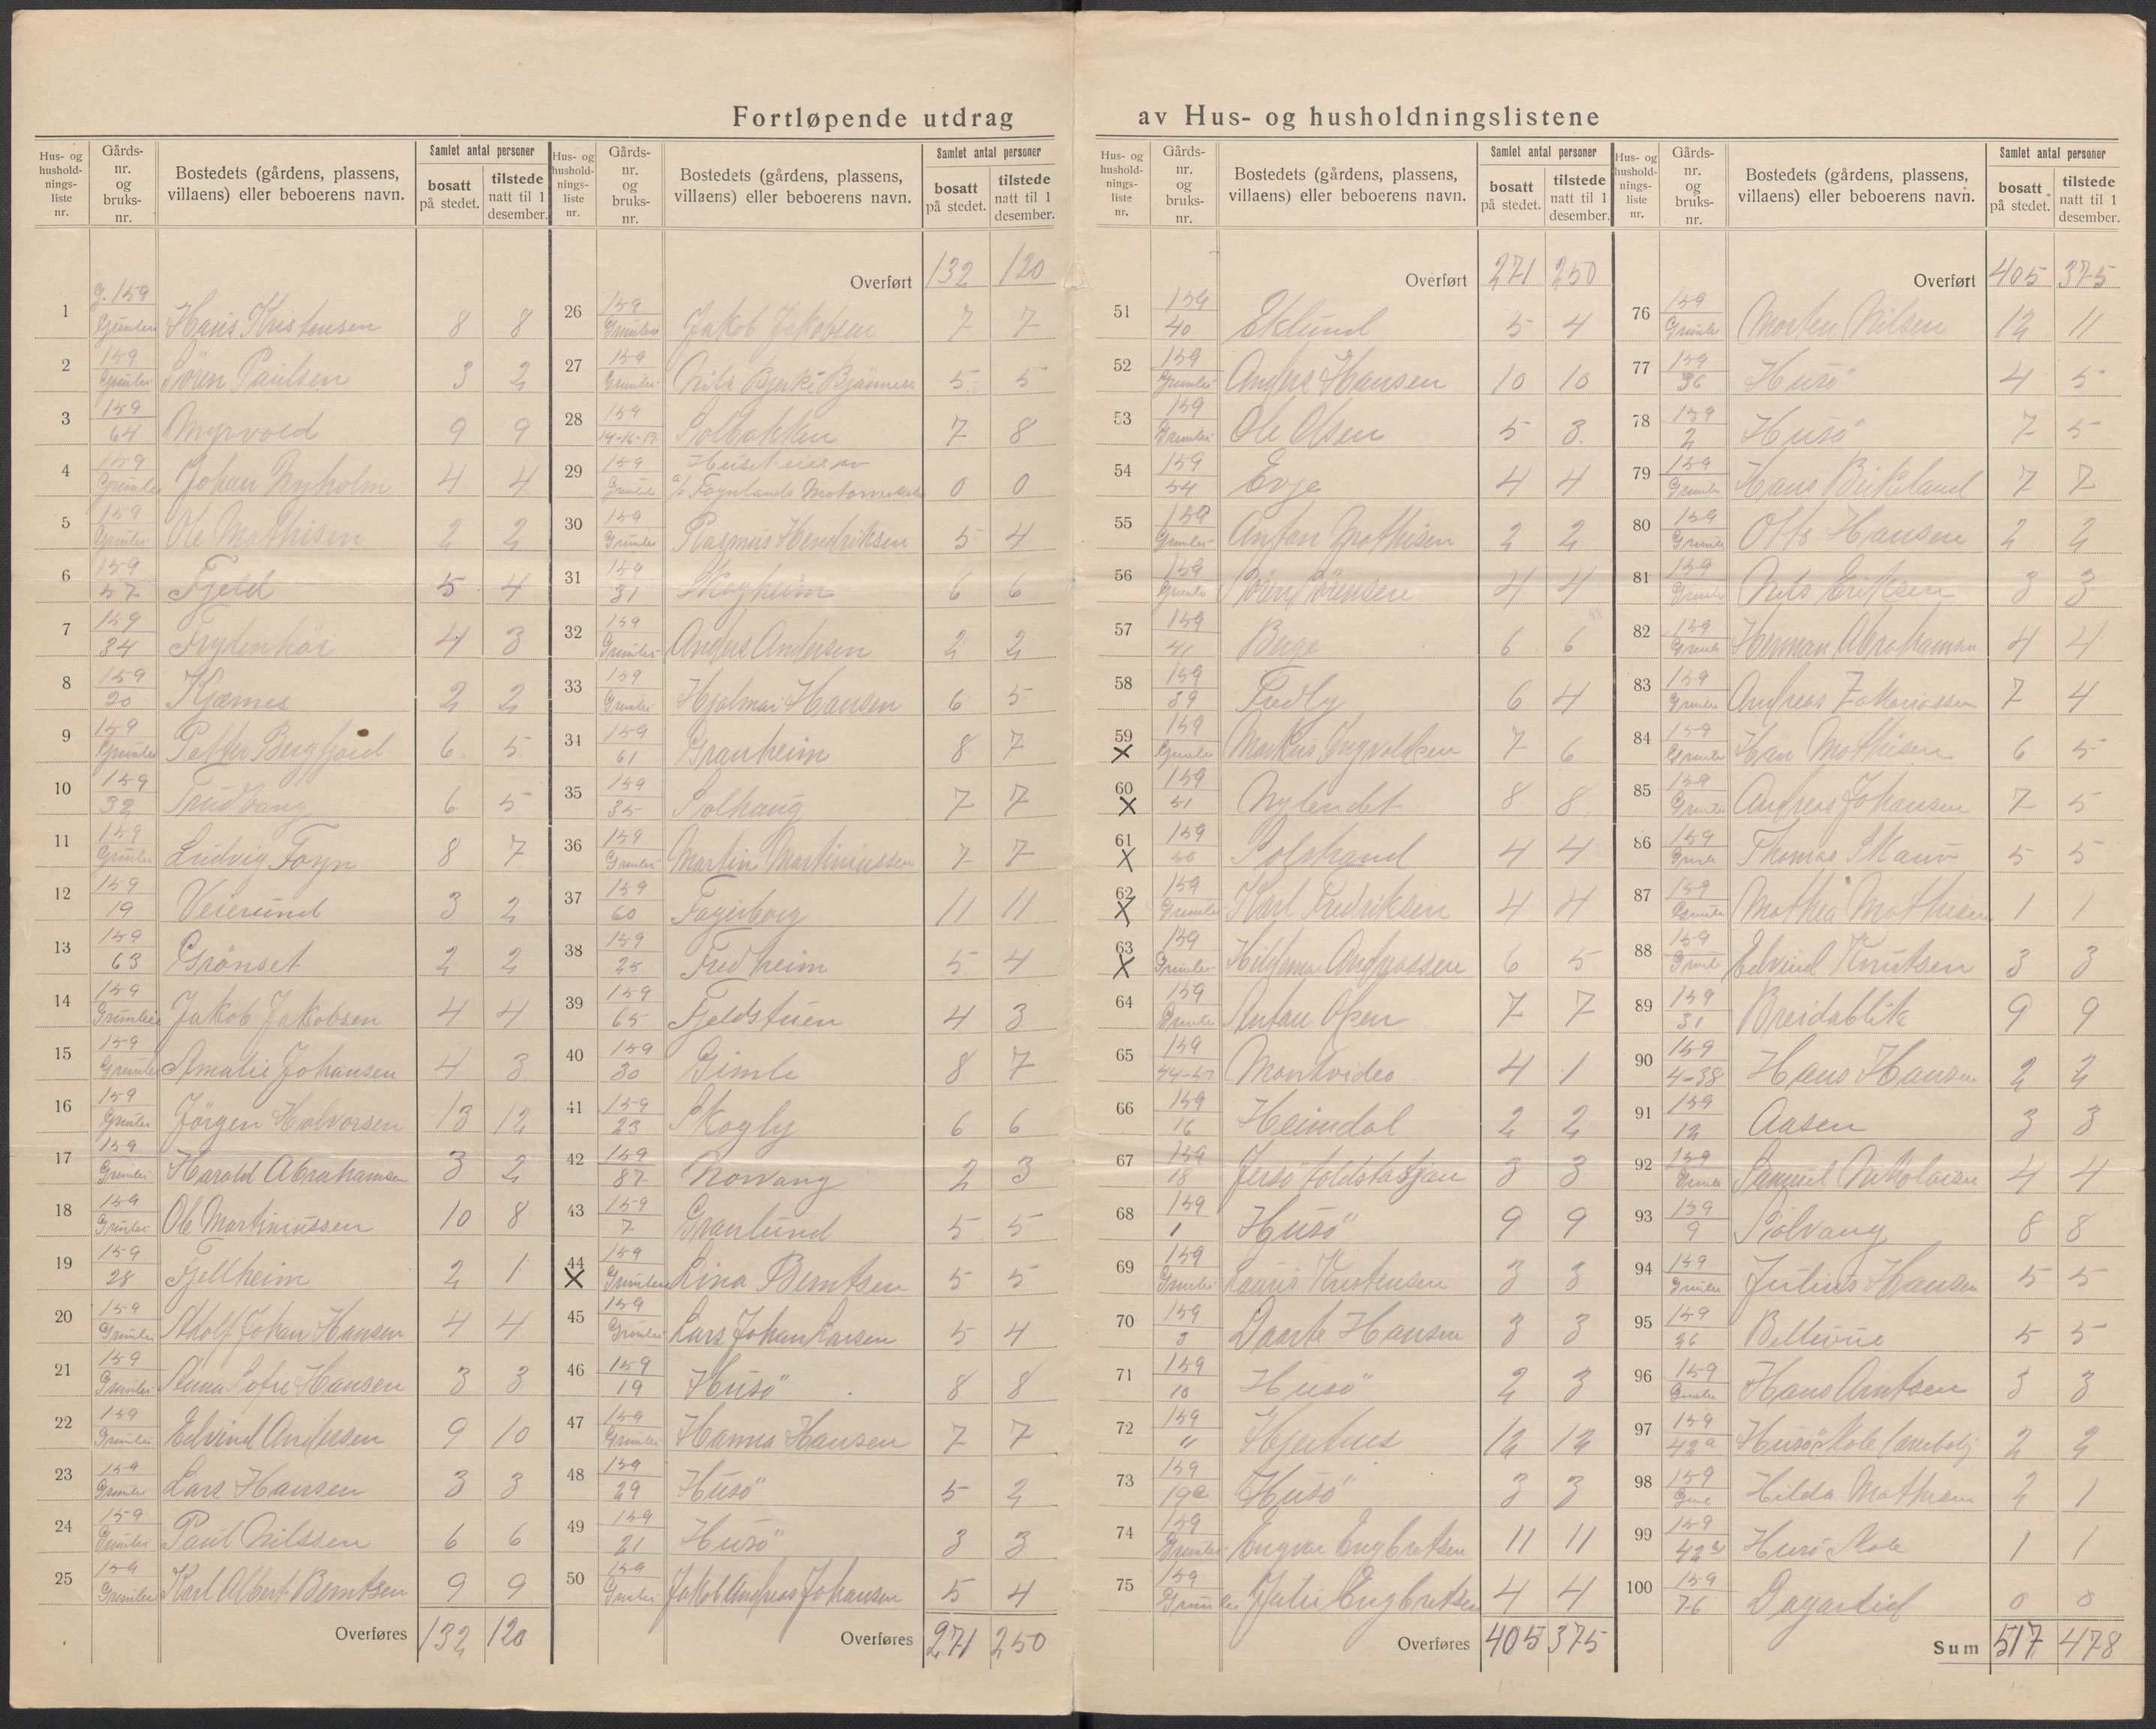 Fortløpende utdrag av Hus- og husholdningslistene
Hus- og husholdnings-liste nr. | Gårds-nr. og bruks-nr. | Bostedets (gårdens, plassens, villaens) eller beboerens navn. | Samlet antal personer | bosatt på stedet. | tilstede natt til 1 desember.
1 | g. 159 Grunleie | Hans Kristensen | 8 | 8
2 | 159 Grunleie | Sören Paulsen | 3 | 2
3 | 159 64 | Myrvold | 9 | 9
4 | 159 Grunleie | Johan Nyholm | 4 | 4
5 | 159 Grunleie | Ole Mathisen | 2 | 2
6 | 159 57 | Fjeld | 5 | 4
7 | 159 34 | Frydenhöi | 4 | 3
8 | 159 20 | Kjærnes | 2 | 2
9 | 159 Grunlei | Petter Bergfjord | 6 | 5
10 | 159 32 | Trudvang | 6 | 5
11 | 159 Grunlei | Ludvig Foyn | 8 | 7
12 | 159 19 | Veierund | 3 | 2
13 | 159 63 | Grönset | 2 | 2
14 | 159 Grunleie | Jakob Jakobsen | 4 | 4
15 | 159 Grunlei | Amalie Johansen | 4 | 3
16 | 159 Grunlei | Jörgen Halvorsen | 13 | 12
17 | 159 Grunlei | Harald Abrahamsen | 3 | 2
18 | 159 Grunlei | Ole Martiniussen | 10 | 8
19 | 159 28 | Fjellheim | 2 | 1
20 | 159 Grunlei | Adolf Johan Hansen | 4 | 4
21 | 159 Grunlei | Anna Sofie Hansen | 3 | 3
22 | 159 Grunlei | Edvind Andersen | 9 | 10
23 | 159 Grunlei | Lars Hansen | 3 | 3
24 | 159 Grunlei | Paul Nilssen | 6 | 6
25 | 159 Grunlei | Karl Albert Berntsen | 9 | 9
Overføres 132 120
Hus- og husholdnings-liste nr. | Gårds-nr. og bruks-nr. | Bostedets (gårdens, plassens, villaens) eller beboerens navn. | Samlet antal personer | bosatt på stedet. | tilstede natt til 1 desember.
Overført 132 120
26 | 159 Grunleie | Jakob Jakobsen | 7 | 7
27 | 159 Grunlei | Nils Bjerke Bjönnes | 5 | 5
28 | 159 14-16-17 | Solbakken | 7 | 8
29 | 159 Grunlei | Huset eies av a/s Fagerlands | 0 | 0
30 | 159 Grunlei | Rasmus Hendriksen | 5 | 4
31 | 159 31 | Skogheim | 6 | 6
32 | 159 Grunlei | Anders Andersen | 2 | 2
33 | 159 Grunlei | Hjalmar Hansen | 6 | 5
34 | 159 61 | Granheim | 8 | 7
35 | 159 35 | Solhaug | 7 | 7
36 | 159 Grunlei | Martin Martiniussen | 7 | 7
37 | 159 60 | Fagerborg | 11 | 11
38 | 159 25 | Fredheim | 5 | 4
39 | 159 65 | Fjeldstuen | 4 | 3
40 | 159 30 | Gimle | 8 | 7
41 | 159 23 | Skogly | 6 | 6
42 | 159 87 | Norvang | 2 | 3
43 | 159 7 | Granlund | 5 | 5
44 X | 159 Grunleie | Lina Berntsen | 5 | 5
45 | 159 Grunlei | Lars Johan Larsen | 5 | 4
46 | 159 19 | Husö | 8 | 8
47 | 159 Grunlei | Hanna Hansen | 7 | 7
48 | 159 29 | Husö | 5 | 2
49 | 159 21 | Husö | 3 | 3
50 | 159 Grunlei | Jakob Andreas Johansen | 5 | 4
Overføres 271 250
Hus- og husholdnings-liste nr. | Gårds-nr. og bruks-nr. | Bostedets (gårdens, plassens, villaens) eller beboerens navn. | Samlet antal personer | bosatt på stedet. | tilstede natt til 1 desember.
Overført 271 250
51 | 159 40 | Eklund | 5 | 4
52 | 159 Grunlei | Anders Hansen | 10 | 10
53 | 159 Grunlei | Ole Olsen | 5 | 3
54 | 159 54 | Evje | 4 | 4
55 | 159 Grunlei | Anton Mathisen | 2 | 2
56 | 159 Grunlei | Sören Sörensen | 4 | 4
57 | 159 41 | Berge | 6 | 6
58 | 159 39 | Fredly | 6 | 4
59 X | 159 Grunlei | Markus Ingvoldsen | 7 | 6
60 X | 159 51 | Nylendet | 8 | 8
61 X | 159 50 | Solstrand | 4 | 4
62 X | 159 Grunlei | Karl Fredriksen | 4 | 4
63 X | 159 Grunlei | Hildemar Andreassen | 6 | 5
64 | 159 Grunlei | Anton Olsen | 7 | 7
65 | 159 44-47 | Montvideo | 4 | 1
66 | 159 16 | Heimdal | 2 | 2
67 | 159 18 | Jersö toldstasjon | 3 | 3
68 | 159 1 | Husö | 9 | 9
69 | 159 Grunlei | Lauris Kristensen | 3 | 3
70 | 159 3 | Daarte Hansen | 3 | 3
71 | 159 10 | Husö | 2 | 3
72 | 159 " | Hjerhus | 12 | 12
73 | 159 19a | Husö | 3 | 3
74 | 159 Grunlei | Engvar Engbretsen | 11 | 11
75 | 159 Grunlei | Julie Engbretsen | 4 | 4
Overføres 405 375
Hus- og husholdnings-liste nr. | Gårds-nr. og bruks-nr. | Bostedets (gårdens, plassens, villaens) eller beboerens navn. | Samlet antal personer | bosatt på stedet. | tilstede natt til 1 desember.
Overført 405 375
76 | 159 Grunlei | Morten Nilsen | 12 | 11
77 | 159 36 | Husö | 4 | 5
78 | 159 2 | Husö | 7 | 5
79 | 159 Grunlei | Hans Birkeland | 7 | 7
80 | 159 Grunlei | Otto Hansen | 2 | 2
81 | 159 Grunlei | Nils Eriksen | 3 | 3
82 | 159 Grunlei | Herman Abrahamsen | 4 | 4
83 | 159 Grunlei | Andreas Zakariassen | 7 | 4
84 | 159 Grunlei | Han Mathisen | 6 | 5
85 | 159 Grunlei | Andreas Johansen | 7 | 5
86 | 159 Grunlei | Thomas Skauv | 5 | 5
87 | 159 Grunlei | Mathea Mathisen | 1 | 1
88 | 159 Grunlei | Edvind Knutsen | 3 | 3
89 | 159 31 | Breidablik | 9 | 9
90 | 159 4-38 | Hans Hansen | 2 | 2
91 | 159 12 | Aasen | 3 | 3
92 | 159 Grunlei | Samuel Nikolaisen | 4 | 4
93 | 159 9 | Solvang | 8 | 8
94 | 159 Grunlei | Julius Hansen | 5 | 5
95 | 159 26 | Bellevue | 5 | 5
96 | 159 Grunlei | Hans Arntsen | 3 | 3
97 | 159 42a | Husö Skole | 2 | 2
98 | 159 | Hilda Mathisen | 2 | 1
99 | 159 42b | Husö Skole | 1 | 1
100 | 159 76 | Dagartid | 0 | 0
Sum 517 478